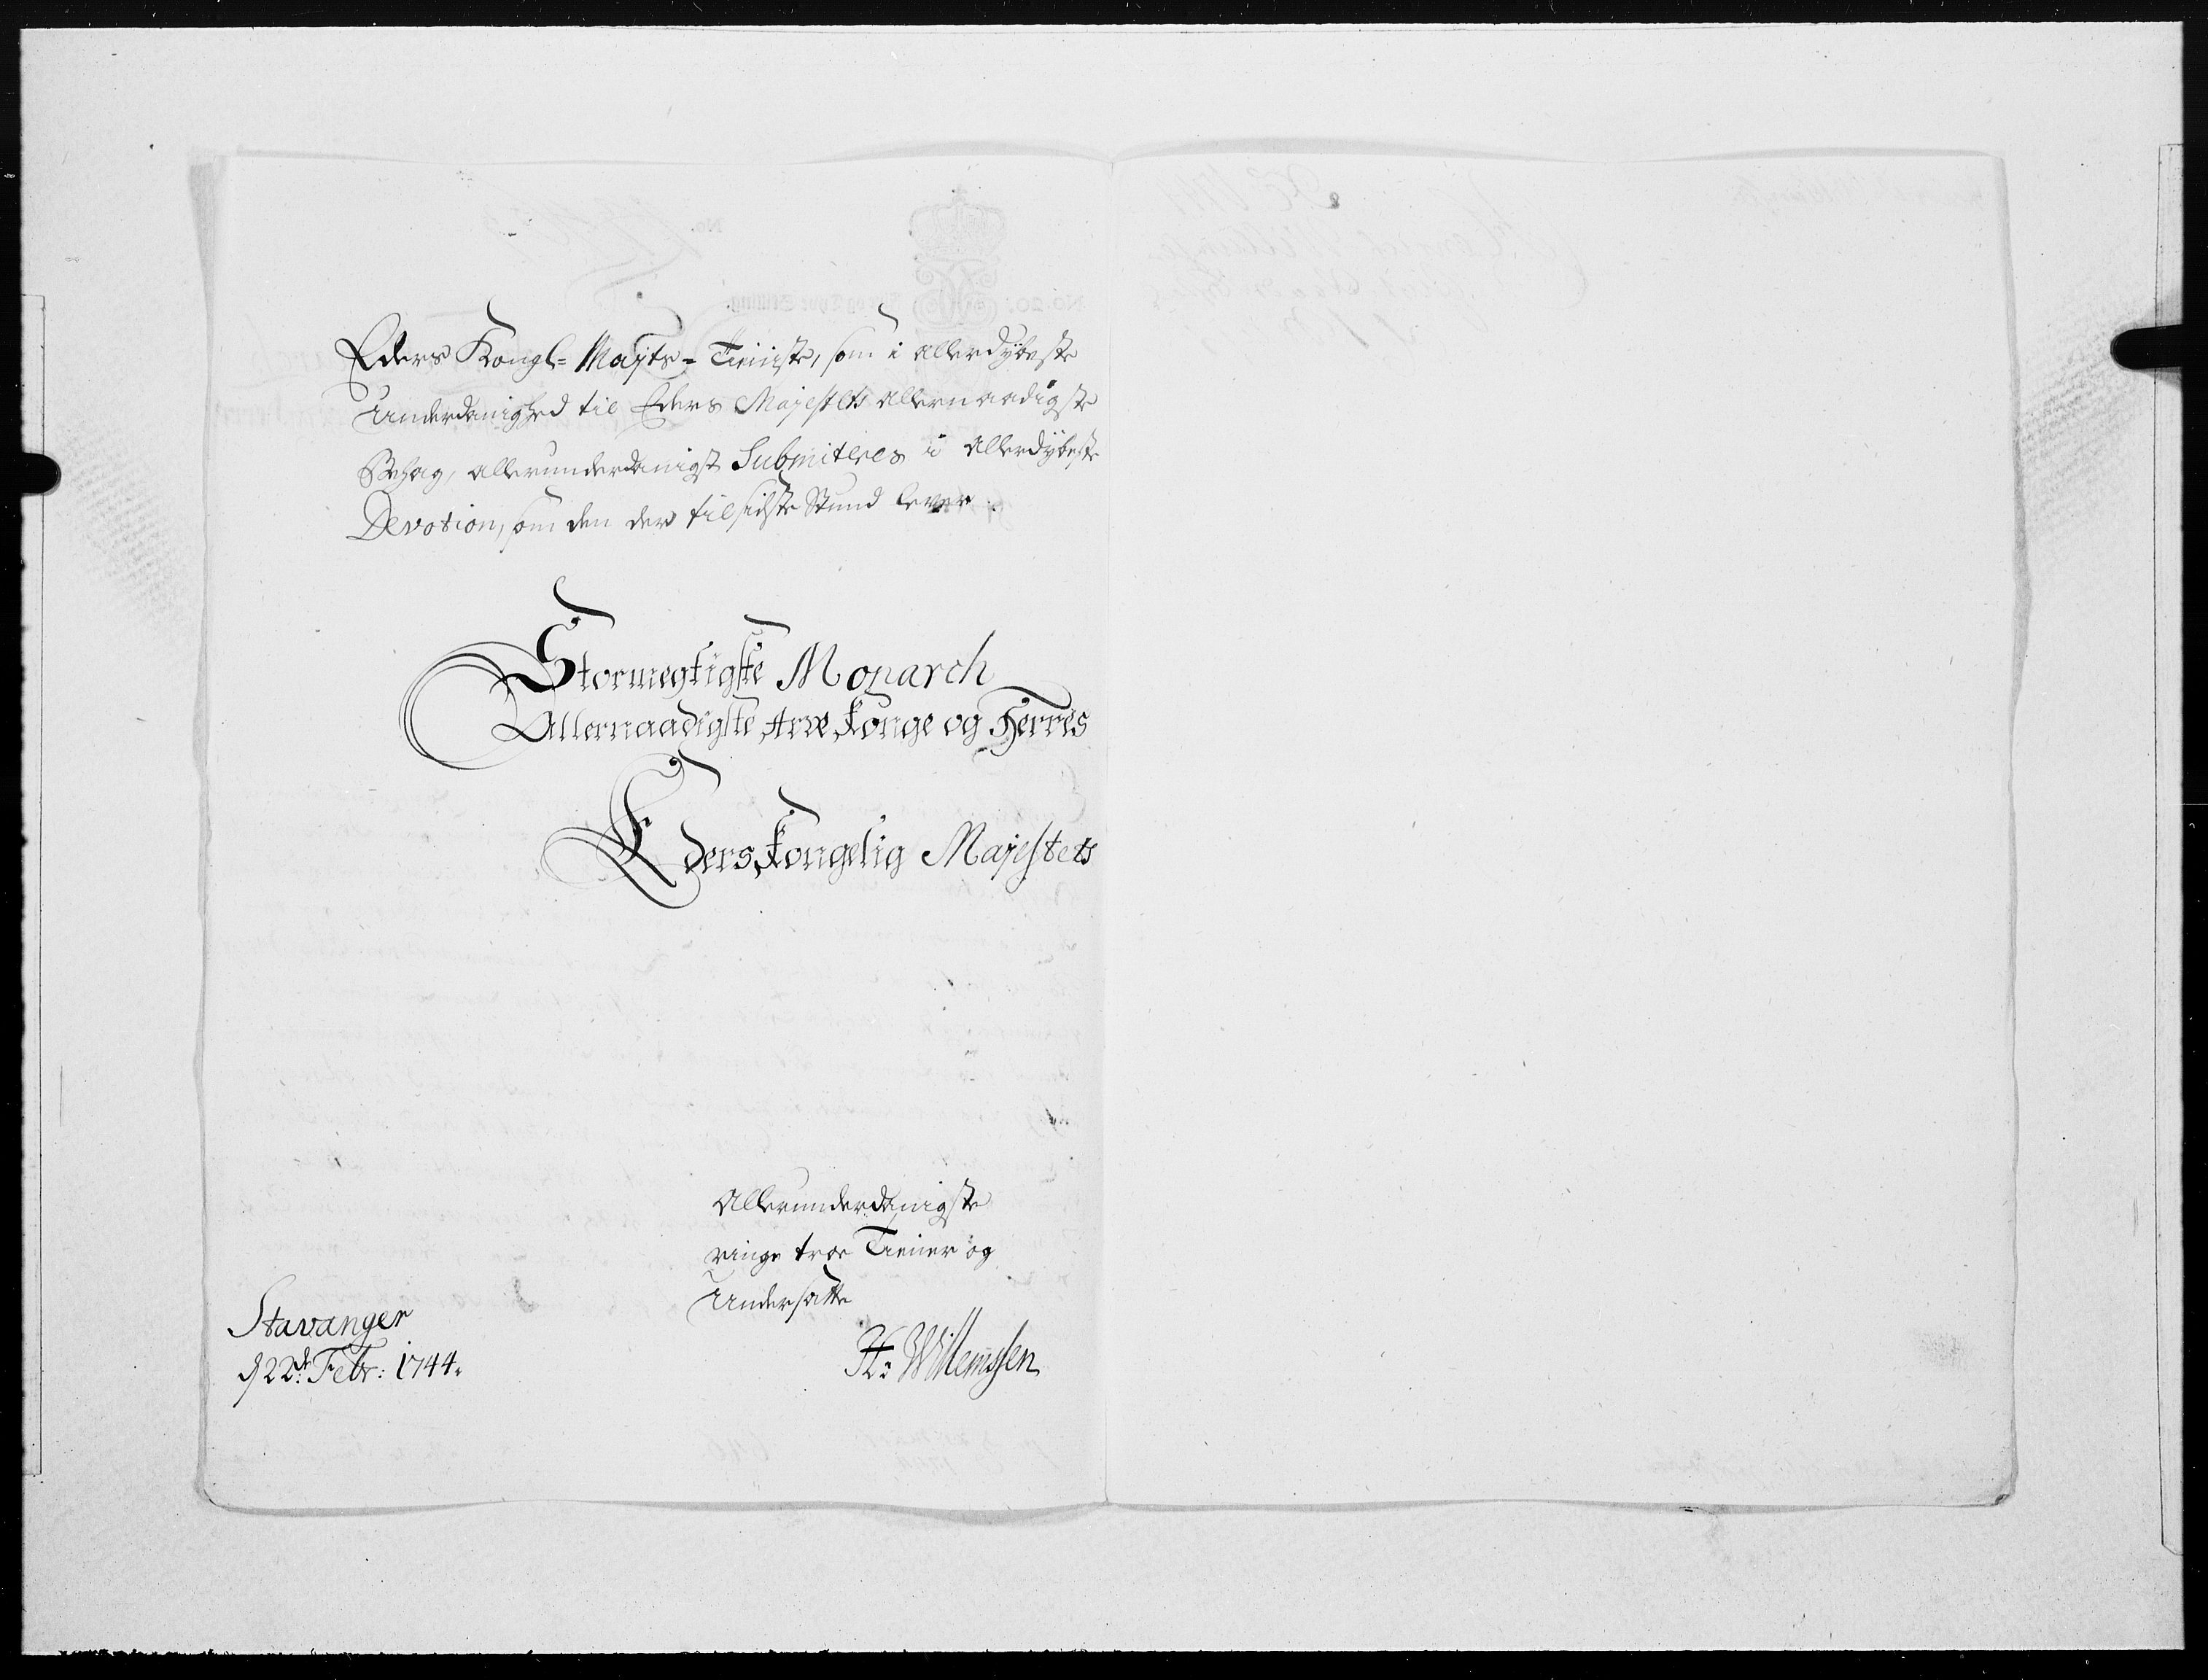 Eders Kongl= Majts= Tieniste, som i allerdybeste
Underdanighed til Eders Majestets allernaadigste
Behag, allerunderdanigst Submiteres i allerdybeste
Devotion, som den der til sidste Stund lever
Stormegtigste Monarch
Allernaadigste Arve Konge og Herres
Eders Kongelig Majestets
Allerunderdanigste
ringe troe Tiener og
Undersatte
H: Willemssen
Stavanger
d 22de Febr: 1744.